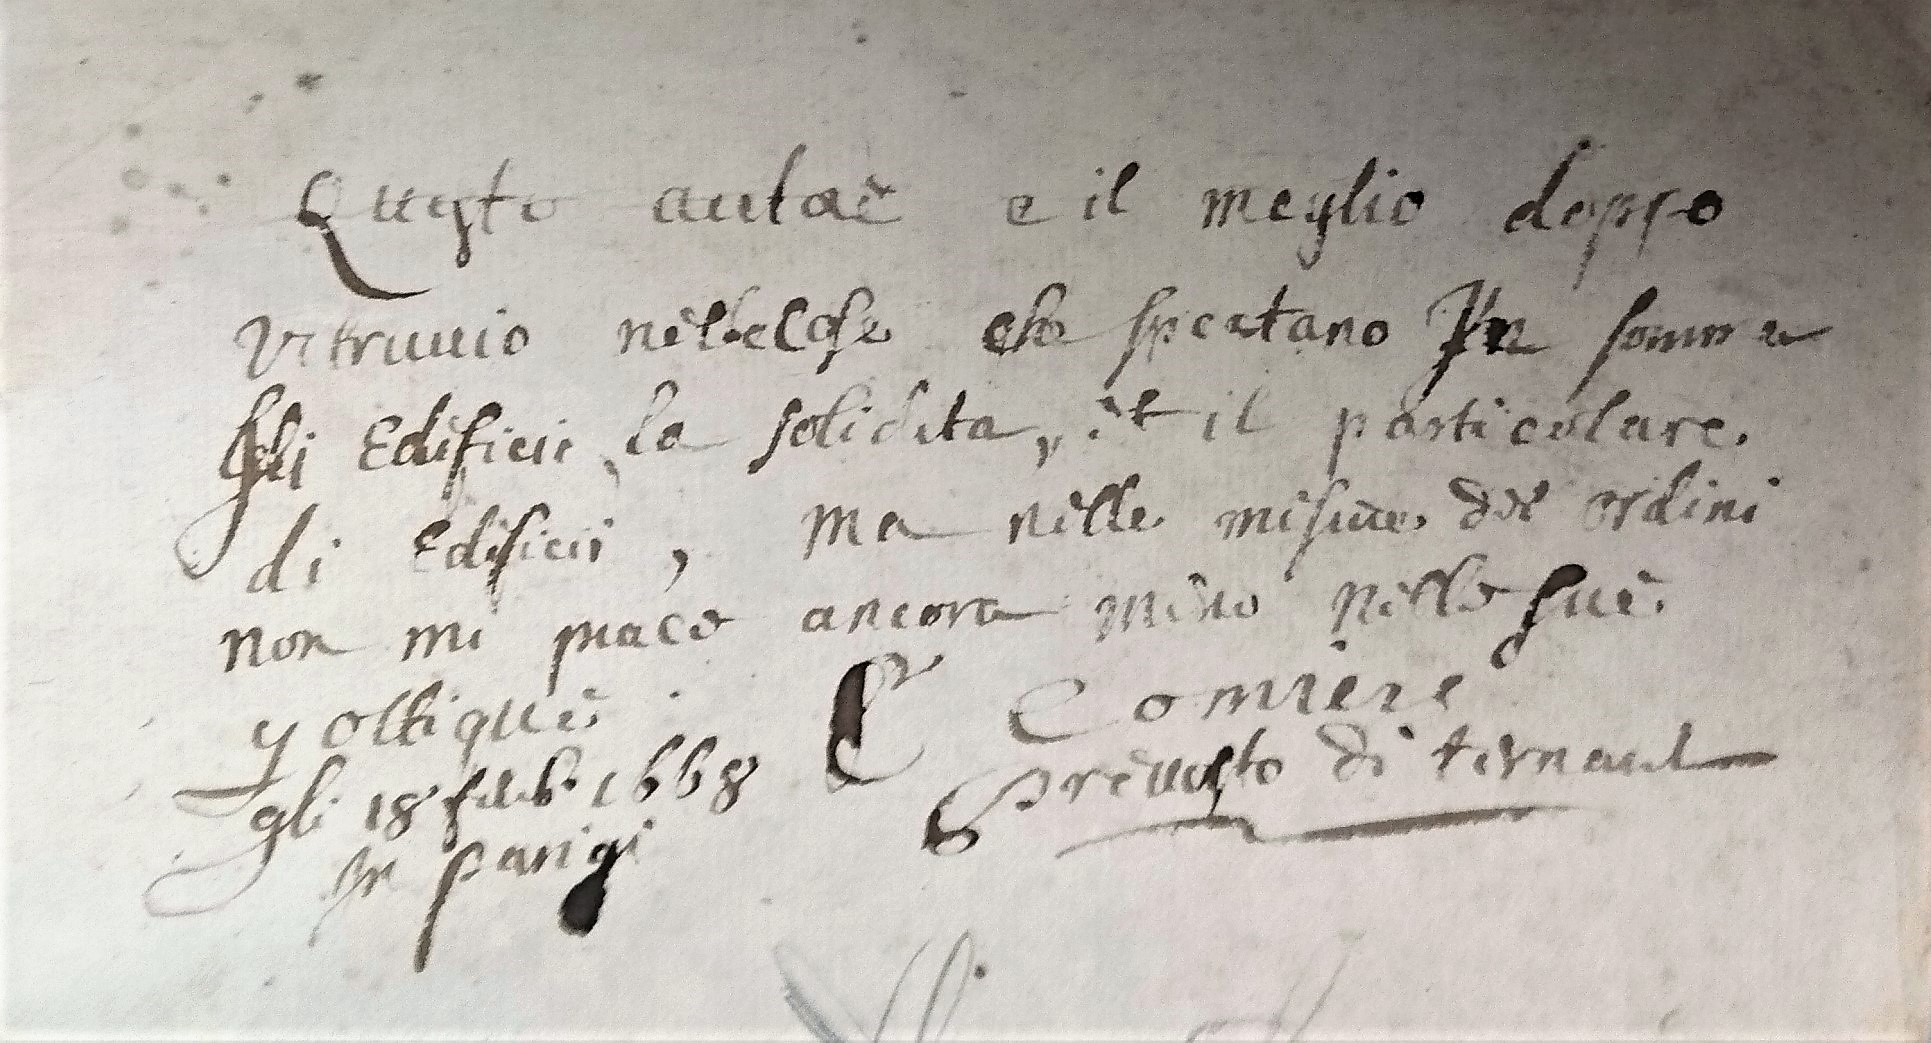 Questo autore e il meglio doppo
Vitruuio nelle cose che spectano In somma
gli Edificii, la solidita, et il particolare
di Edificii, ma nelle misure dei ordini
non mi piace ancora meno nelle sue
oblique
C Comiere
gli 18 feub. 1668 prevosto di ternant
In parigi